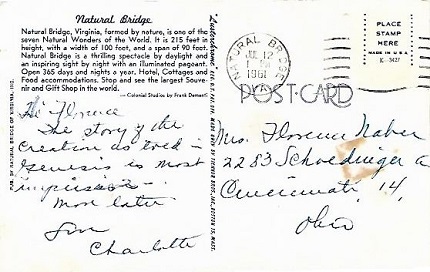 Natural Bridge
Natural Bridge, Virginia, formed by nature, is one of the
seven Natural Wonders of the World. It is 215 feet in
height, with a width of 100 feet, and a span of 90 feet.
Natural Bridge is a thrilling spectacle by daylight and
an inspiring sight by night with an illuminated pageant.
Open 365 days and nights a year. Hotel, Cottages and
Food accommodations. Stop and see the largest Souve-
nir and Gift Shop in the world.
— Colonial Studios by Frank Dementi
PUB. BY NATURAL BRIDGE OF VIRGINIA, INC.
Hi Florence
The story of the
Creation as told in
Genesis is most
impressive
More later
Charlotte
Lusterchrome
NATURAL BRIDGE
JUL 12
1961
VA.
PLACE
STAMP
HERE
MADE IN U.S.A.
K-3427
POST-CARD
Mrs. Florence Naber
2283 Schoedinger
Cincinnati, 14,
Ohio